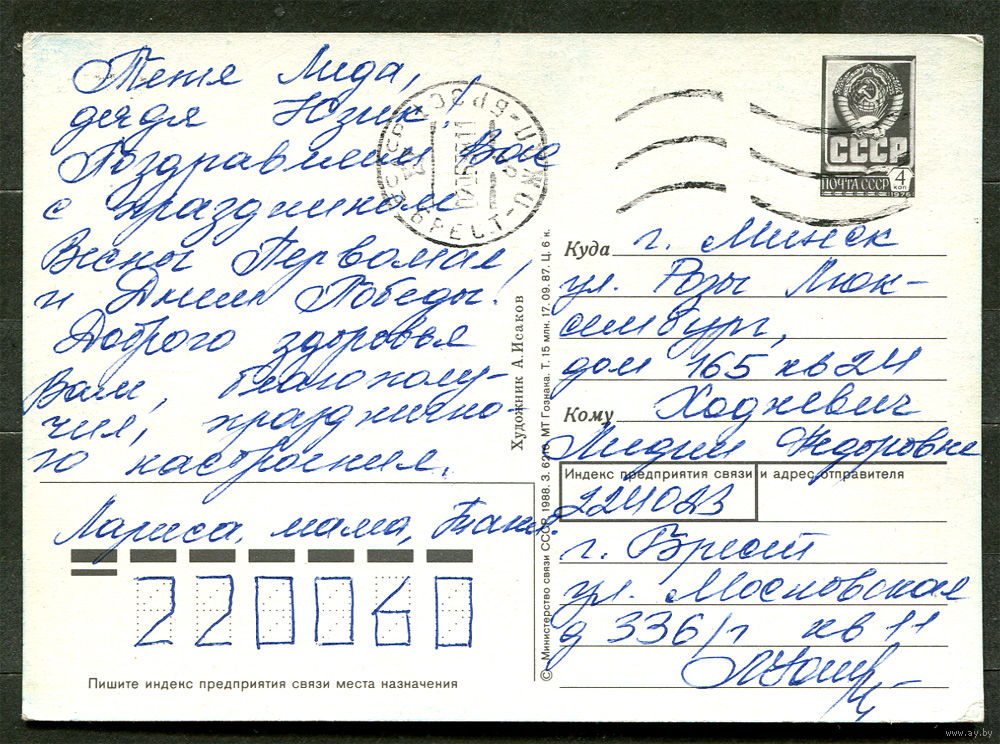 Тетя Лида,
дядя Юзик!
Поздравляем Вас
с праздником
Весны Первомая,
и Днем Победы!
Доброго здоровья
Вам, благополу-
чия, празднично-
го настроения.
Лариса, мама, Таня.
220060
Пишите индекс предприятия связи места назначения
Художник А.Исаков
© Министерство связи СССР, 1988. З. 6210. МТ Гознака. Т. 15 млн. 17. 09. 87. Ц. 6 к.
БРЕСТ
СССР
ПОЧТА СССР
4 коп
1976
Куда г. Минск
ул. Розы Люк-
сембург,
дом 165 кв 24
Кому Ходжевич
Лидии Федоровне
Индекс предприятия связи и адрес отправителя
224023
г. Брест
ул. Московская
д 336/1 кв 11
www.ay.by